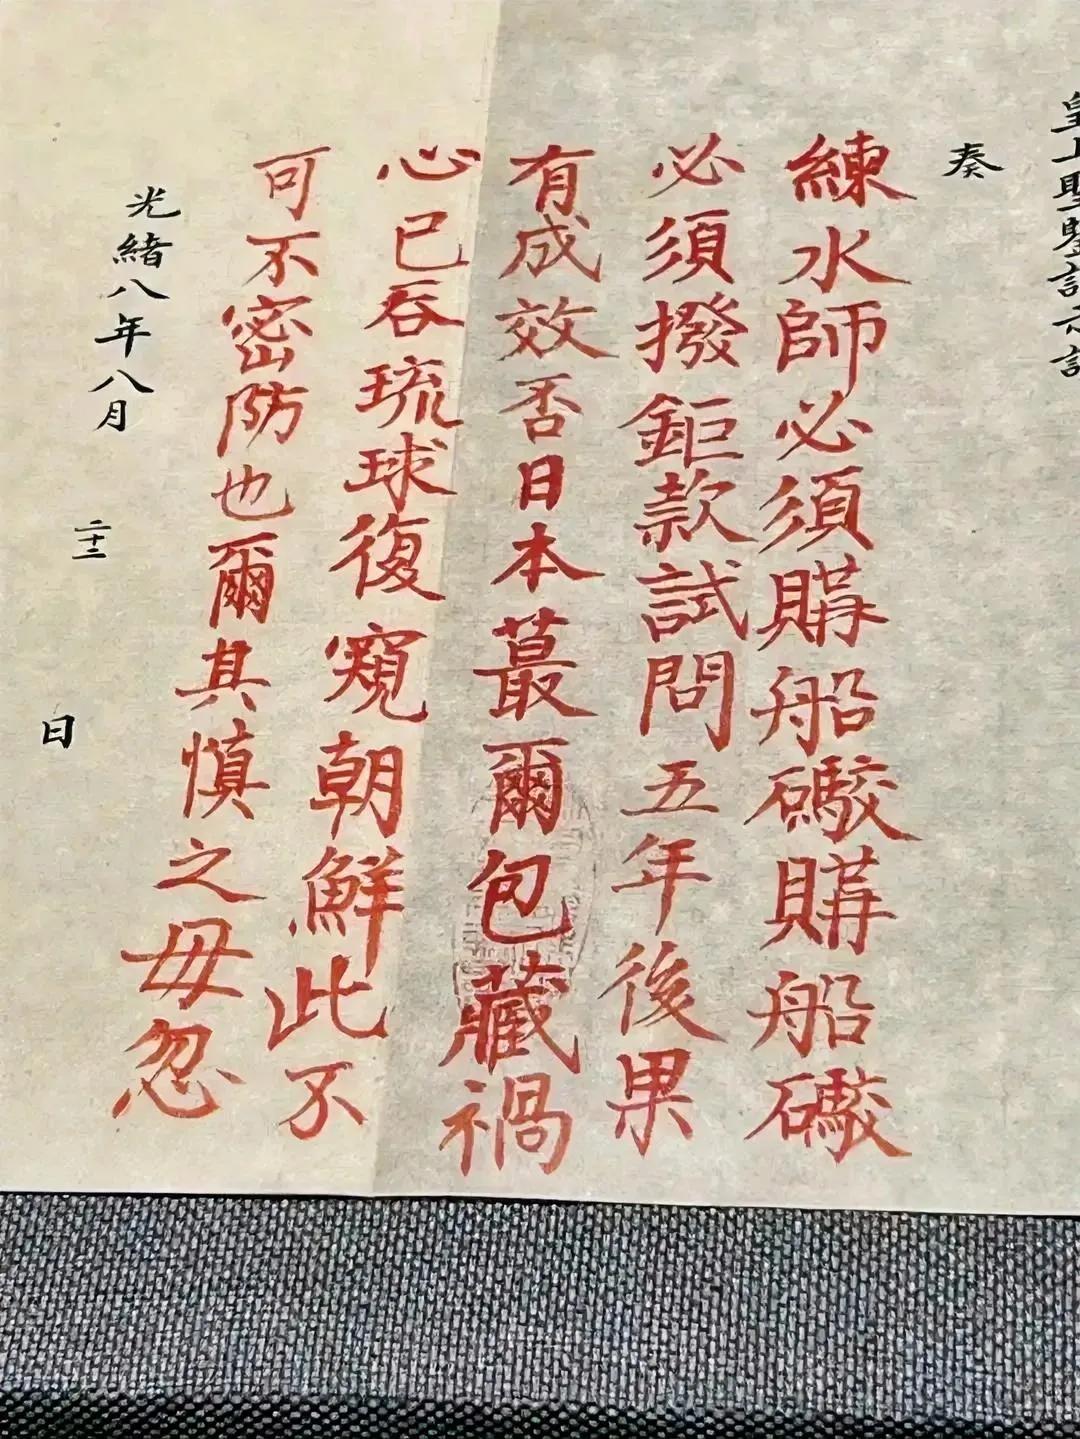 皇上聖鑒訓示謹
奏
練水師必須購船礮購船礮
必須撥鉅款試問五年後果
有成效否日本蕞爾包藏禍
心已吞琉球復窺朝鮮此不
可不密防也爾其慎之毋忽
光緒八年八月二十二日